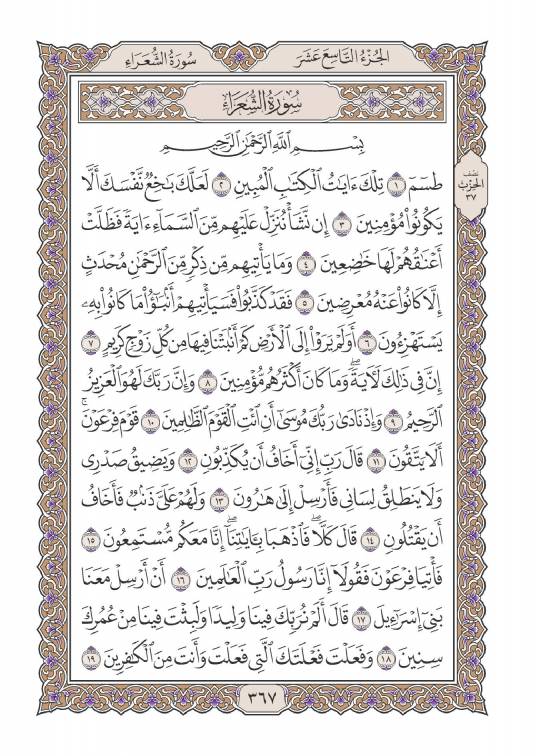 الجُزْءُ التَّاسِعَ عَشَرَ
سُورَةُ الشُّعَرَاءِ
سُورَةُ الشُّعَرَاءِ
نصف الحزب ٣٧
بِسْمِ اللَّهِ الرَّحْمَٰنِ الرَّحِيمِ
طسٓمٓ ١ تِلْكَ ءَايَٰتُ ٱلْكِتَٰبِ ٱلْمُبِينِ ٢ لَعَلَّكَ بَٰخِعٌ نَّفْسَكَ أَلَّا
يَكُونُوا۟ مُؤْمِنِينَ ٣ إِن نَّشَأْ نُنَزِّلْ عَلَيْهِم مِّنَ ٱلسَّمَآءِ ءَايَةً فَظَلَّتْ
أَعْنَٰقُهُمْ لَهَا خَٰضِعِينَ ٤ وَمَا يَأْتِيهِم مِّن ذِكْرٍ مِّنَ ٱلرَّحْمَٰنِ مُحْدَثٍ
إِلَّا كَانُوا۟ عَنْهُ مُعْرِضِينَ ٥ فَقَدْ كَذَّبُوا۟ فَسَيَأْتِيهِمْ أَنۢبَٰٓؤُا۟ مَا كَانُوا۟ بِهِۦ
يَسْتَهْزِءُونَ ٦ أَوَلَمْ يَرَوْا۟ إِلَى ٱلْأَرْضِ كَمْ أَنۢبَتْنَا فِيهَا مِن كُلِّ زَوْجٍ كَرِيمٍ ٧
إِنَّ فِى ذَٰلِكَ لَءَايَةً ۖ وَمَا كَانَ أَكْثَرُهُم مُّؤْمِنِينَ ٨ وَإِنَّ رَبَّكَ لَهُوَ ٱلْعَزِيزُ
ٱلرَّحِيمُ ٩ وَإِذْ نَادَىٰ رَبُّكَ مُوسَىٰٓ أَنِ ٱئْتِ ٱلْقَوْمَ ٱلظَّٰلِمِينَ ١٠ قَوْمَ فِرْعَوْنَ ۚ
أَلَا يَتَّقُونَ ١١ قَالَ رَبِّ إِنِّىٓ أَخَافُ أَن يُكَذِّبُونِ ١٢ وَيَضِيقُ صَدْرِى
وَلَا يَنطَلِقُ لِسَانِى فَأَرْسِلْ إِلَىٰ هَٰرُونَ ١٣ وَلَهُمْ عَلَىَّ ذَنۢبٌ فَأَخَافُ
أَن يَقْتُلُونِ ١٤ قَالَ كَلَّا ۖ فَٱذْهَبَا بِـَٔايَٰتِنَآ ۖ إِنَّا مَعَكُم مُّسْتَمِعُونَ ١٥
فَأْتِيَا فِرْعَوْنَ فَقُولَآ إِنَّا رَسُولُ رَبِّ ٱلْعَٰلَمِينَ ١٦ أَنْ أَرْسِلْ مَعَنَا
بَنِىٓ إِسْرَٰٓءِيلَ ١٧ قَالَ أَلَمْ نُرَبِّكَ فِينَا وَلِيدًا وَلَبِثْتَ فِينَا مِنْ عُمُرِكَ
سِنِينَ ١٨ وَفَعَلْتَ فَعْلَتَكَ ٱلَّتِى فَعَلْتَ وَأَنتَ مِنَ ٱلْكَٰفِرِينَ ١٩
٣٦٧